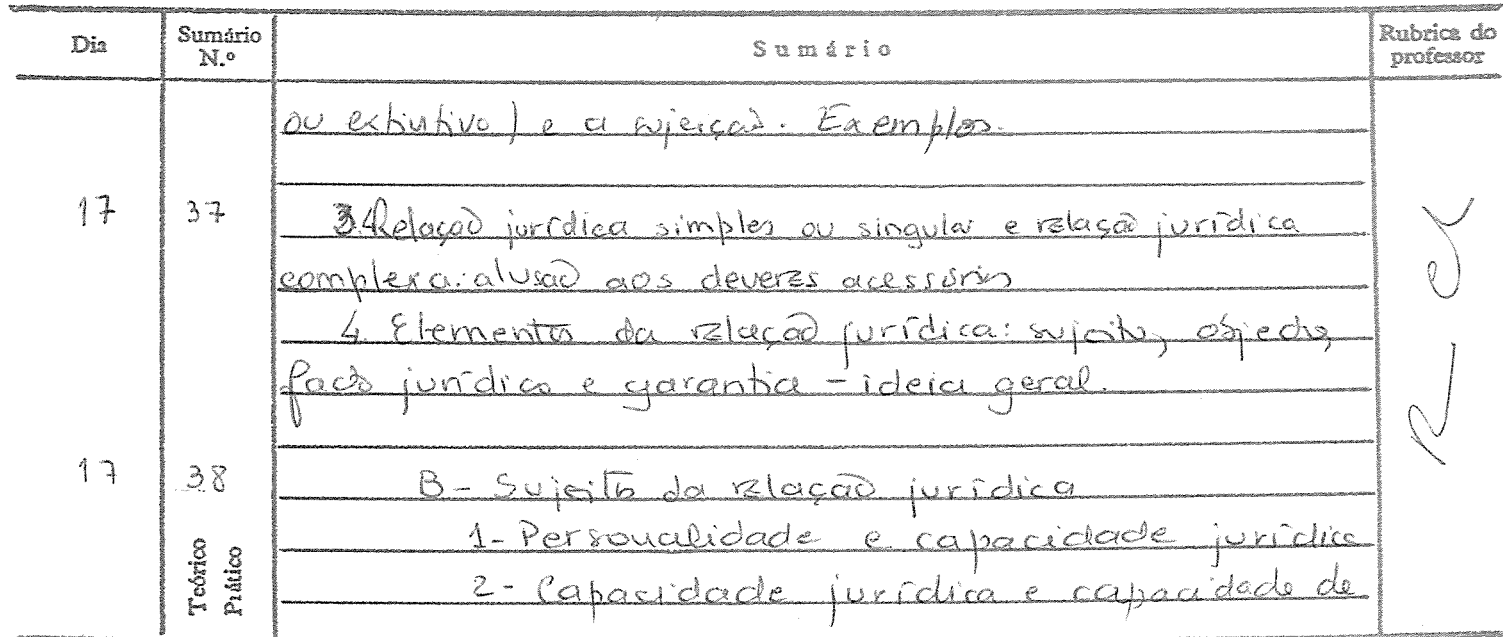 Dia Sumário N.º Sumário Rubrica do professor
ou extintivo) e a sujeição. Exemplos.
17 37 3.4 Relação jurídica simples ou singular e relação jurídica
complexa: alusão aos deveres acessórios
4. Elementos da relação jurídica: sujeito, objecto,
facto jurídico e garantia - ideia geral.
17 38 B - Sujeito da relação jurídica
Teórico Prático 1 - Personalidade e capacidade jurídica
2 - Capacidade jurídica e capacidade de